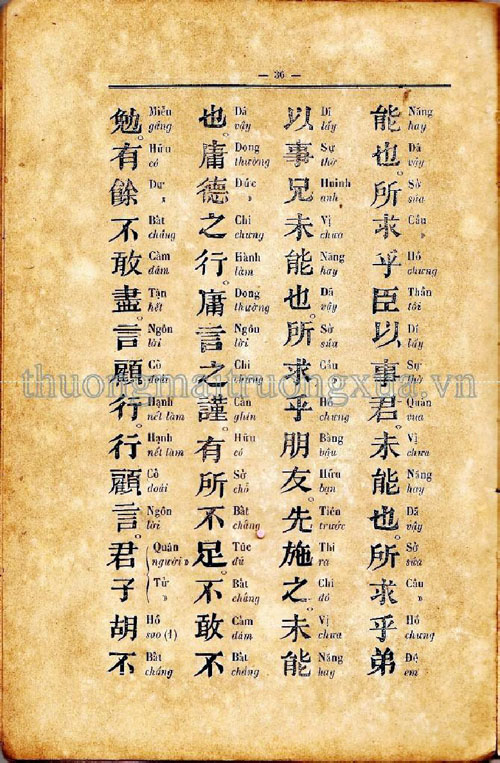 — 36 —
能 Năng hay 也。 Dã vậy 所 Sở sửa 求 Cầu » 乎 Hồ chưng 臣 Thần tôi 以 Dĩ lấy 事 Sự thờ 君。 Quân vua 未 Vị chưa 能 Năng hay 也。 Dã vậy 所 Sở sửa 求 Cầu » 乎 Hồ chưng 弟 Đệ em
以 Dĩ lấy 事 Sự thờ 兄 Huinh anh 未 Vị chưa 能 Năng hay 也。 Dã vậy 所 Sở sửa 求 Cầu » 乎 Hồ chưng 朋 Bằng bậu 友。 Hữu bạn 先 Tiên trước 施 Thi ra 之。 Chi đó 未 Vị chưa 能 Năng hay
也。 Dã vậy 庸 Dong thường 德 Đức » 之 Chi chưng 行。 Hành làm 庸 Dong thường 言 Ngôn lời 之 Chi chưng 謹。 Cẩn ghín 有 Hữu có 所 Sở chỗ 不 Bất chẳng 足。 Túc đủ 不 Bất chẳng 敢 Cảm dám 不 Bất chẳng
勉。 Miễn gắng 有 Hữu có 餘 Dư » 不 Bất chẳng 敢 Cảm dám 盡 Tận hết 言 Ngôn lời 顧 Cố 行。 Hạnh nết làm 行 Hạnh nết làm 顧 Cố doái 言。 Ngôn lời 君 Quân người » 子 Tử » 胡 Hồ sao (1) 不 Bất chẳng
thuongmaitruongxua.vn